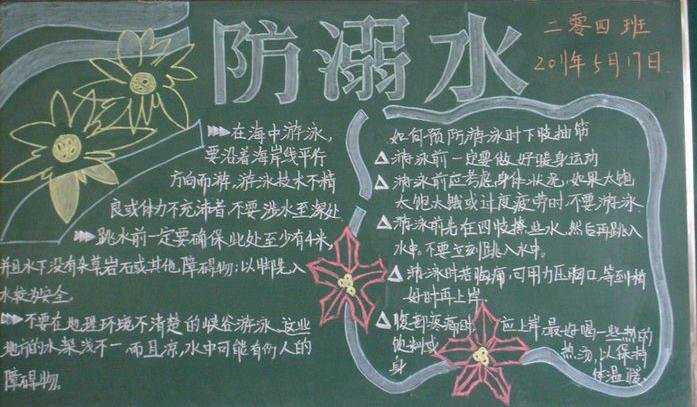 防溺水
二零四班
2019年5月17日
在海中游泳,
要沿着海岸线平行
方向而游,游泳技术不精
良或体力不充沛者,不要涉水至深处
跳水前一定要确保此处至少有4米,
并且水下没有杂草岩石或其他障碍物;以脚先入
水较为安全
不要在地理环境不清楚的峡谷游泳,这些
地方的水深浅不一而且凉,水中可能有伤人的
障碍物。
如何预防游泳时下肢抽筋
游泳前一定要做好暖身运动
游泳前应考虑身体状况,如果太饱
太饱太饿或过度疲劳时,不要游泳
游泳前先在四肢撩些水,然后再跳入
水中,不要立刻跳入水中。
游泳时若胸痛,可用力压胸口,等到稍
好时再上岸.
腹部疼痛时 应上岸,最好喝一些热的
热汤,以保持
身 体温暖